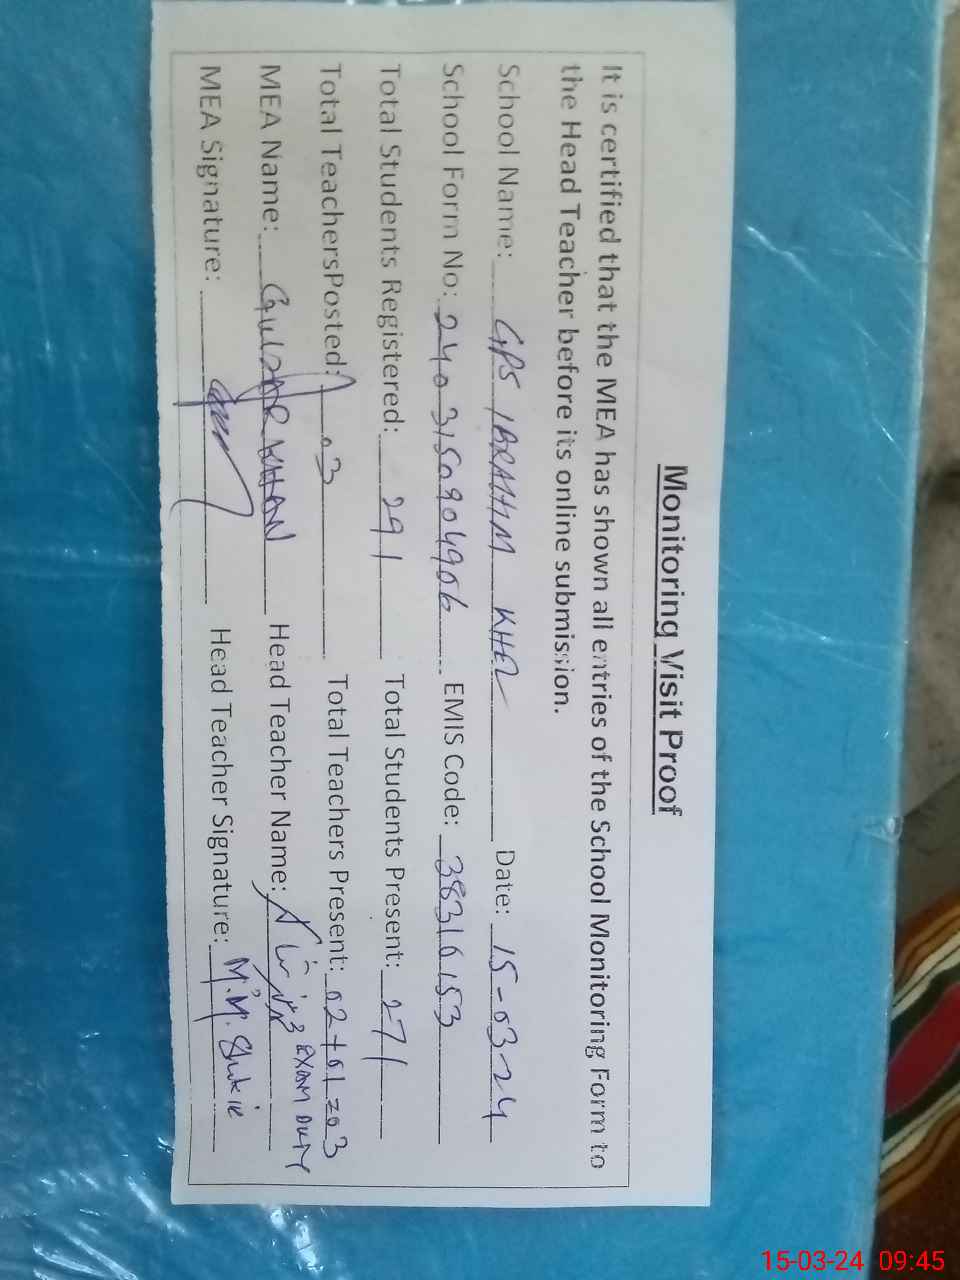 Monitoring Visit Proof
It is certified that the MEA has shown all entries of the School Monitoring Form to
the Head Teacher before its online submission.
School Name: GPS IBRAHIM KHEL Date: 15-03-24
School Form No: 2403150904906 EMIS Code: 38316153
Total Students Registered: 291 Total Students Present: 271
Total TeachersPosted: 03 Total Teachers Present: 02+01=03
EXAM DUTY
MEA Name: GULZAR KHAN Head Teacher Name:
MEA Signature: Head Teacher Signature: M.M.
15-03-24 09:45